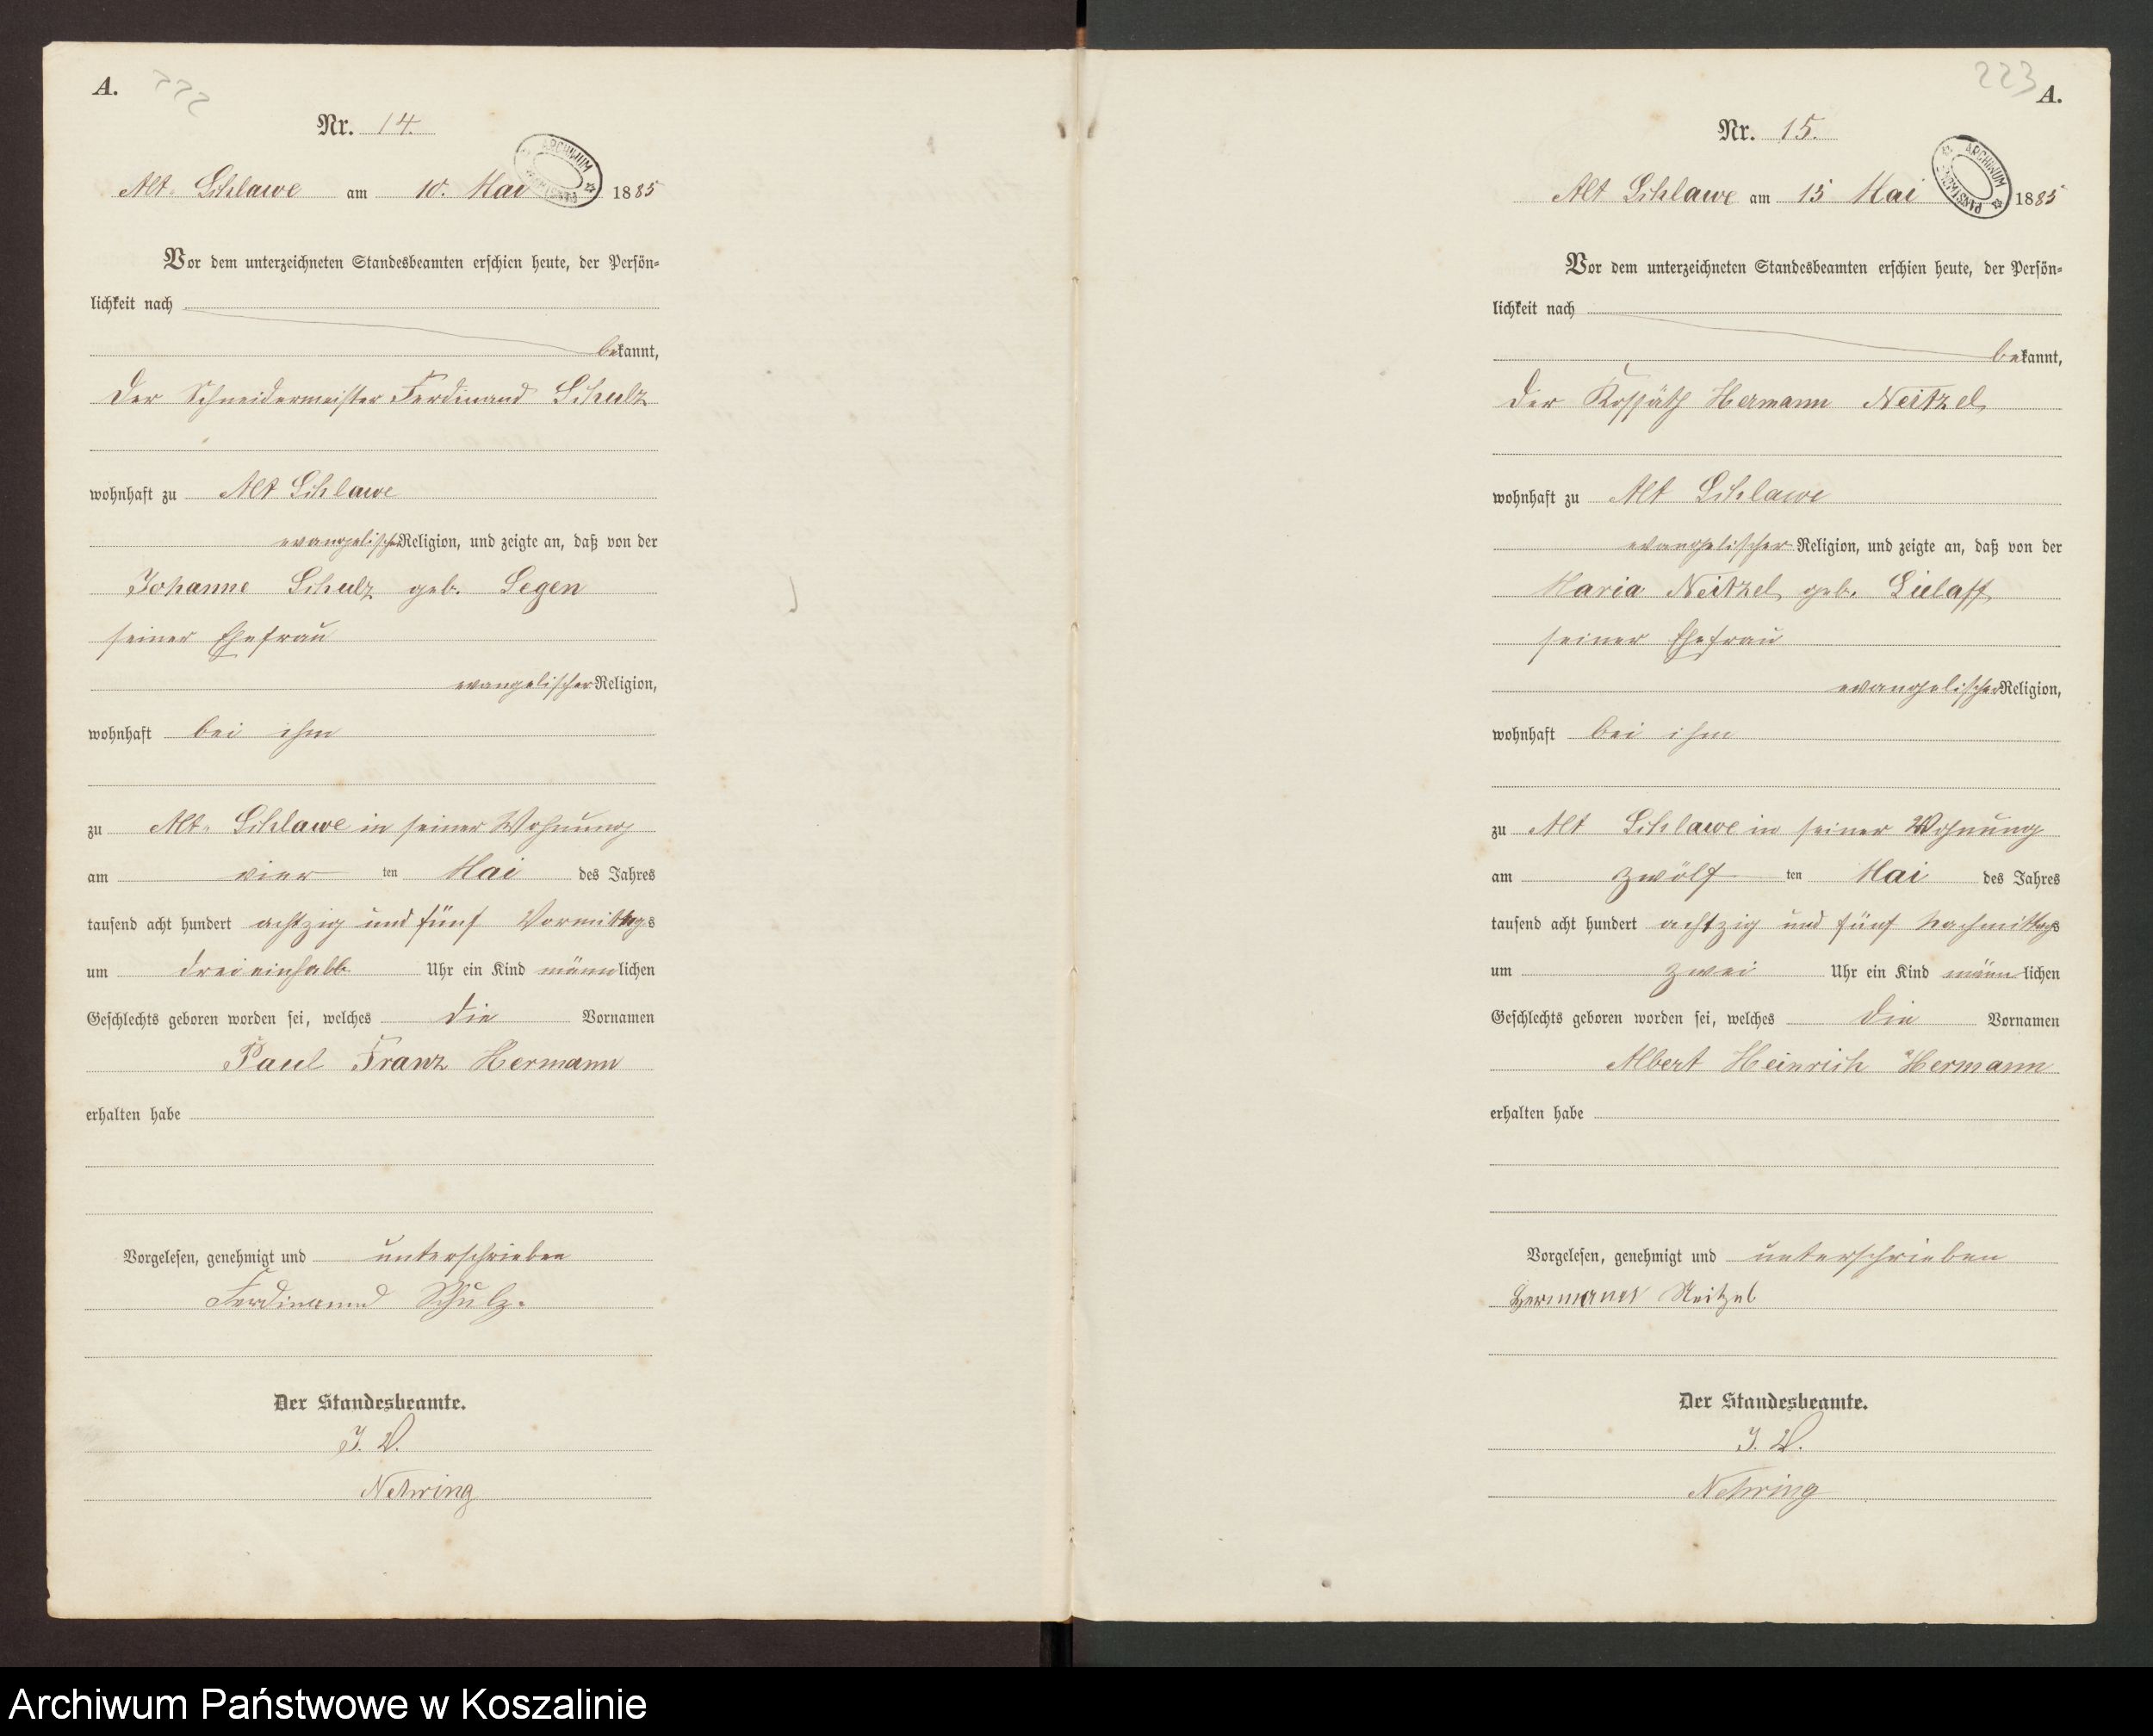 A.
222
Nr. 14.
ARCHIWUM
Alt-Schlawe am 10. Mai 1885
Vor dem unterzeichneten Standesbeamten erschien heute, der Persön-
lichkeit nach
bekannt,
der Schneidermeister Ferdinand Schulz
wohnhaft zu Alt Schlawe
evangelischer Religion, und zeigte an, daß von der
Johanne Schulz geb. Segen
seiner Ehefrau
evangelischer Religion,
wohnhaft bei ihm
zu Alt-Schlawe in seiner Wohnung
am vier ten Mai des Jahres
tausend acht hundert achtzig und fünf Vormittags
um drei einhalb Uhr ein Kind männlichen
Geschlechts geboren worden sei, welches die Vornamen
Paul Franz Hermann
erhalten habe
Vorgelesen, genehmigt und unterschrieben
Ferdinannd Schulz.
Der Standesbeamte.
J. V.
Nehring
223
A.
Nr. 15.
ARCHIWUM PAŃSTWOWE
Alt Schlawe am 15 Mai 1885
Vor dem unterzeichneten Standesbeamten erschien heute, der Persön-
lichkeit nach
bekannt,
der Kossäth Hermann Neitzel
wohnhaft zu Alt Schlawe
evangelischer Religion, und zeigte an, daß von der
Maria Neitzel geb. Sielaff
seiner Ehefrau
evangelischer Religion,
wohnhaft bei ihm
zu Alt Schlawe in seiner Wohnung
am zwölf ten Mai des Jahres
tausend acht hundert achtzig und fünf Nachmittags
um zwei Uhr ein Kind männlichen
Geschlechts geboren worden sei, welches die Vornamen
Albert Heinrich Hermann
erhalten habe
Vorgelesen, genehmigt und unterschrieben
Hermann Neitzel
Der Standesbeamte.
J. V.
Nehring
Archiwum Państwowe w Koszalinie